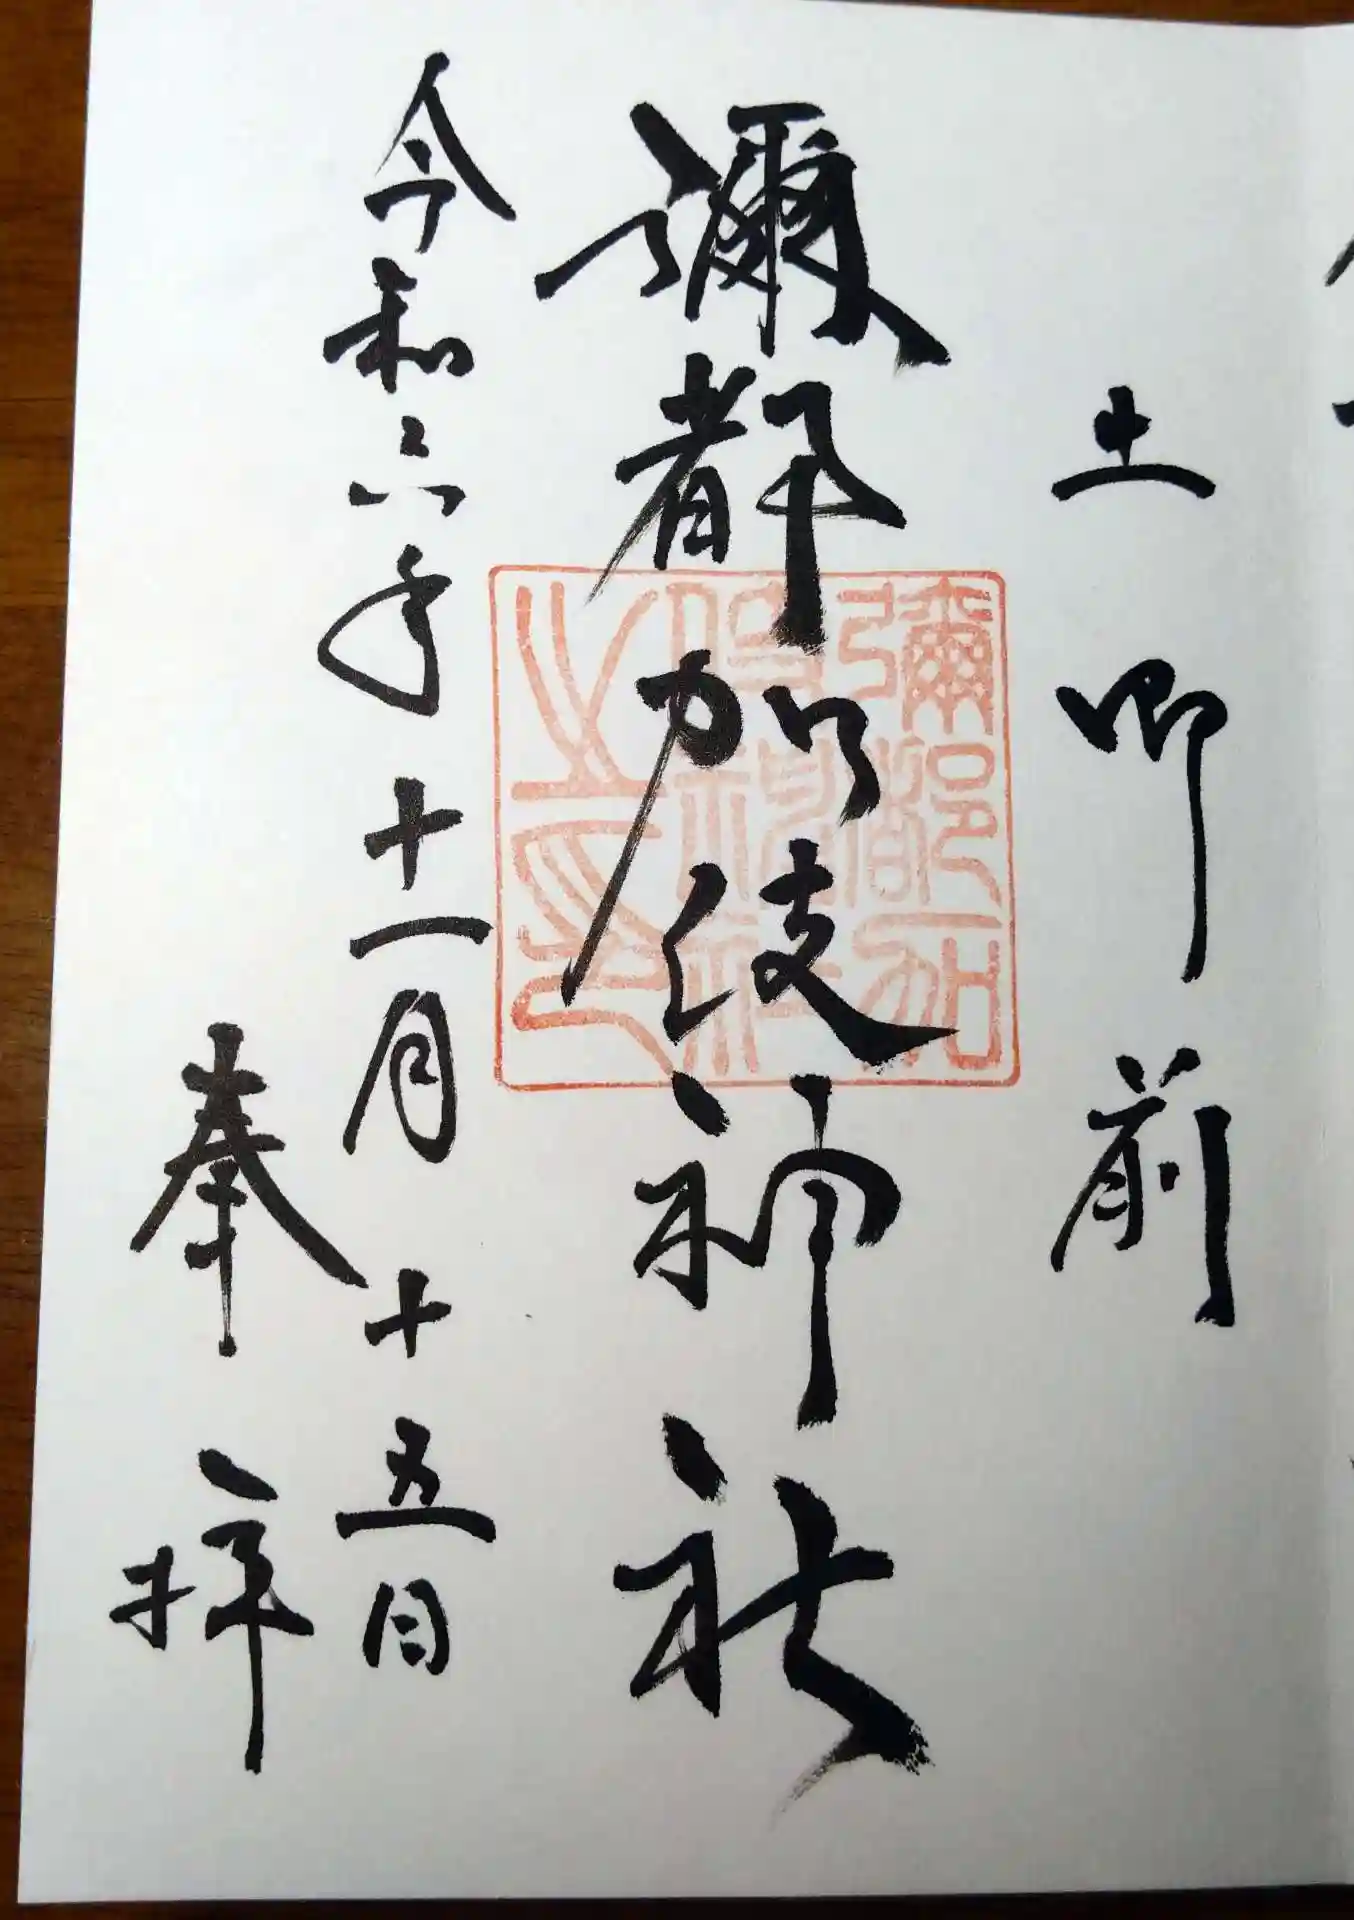 土御前
彌都加伎神社
令和六年十一月十五日
奉拝
彌都加
伎神社
之印